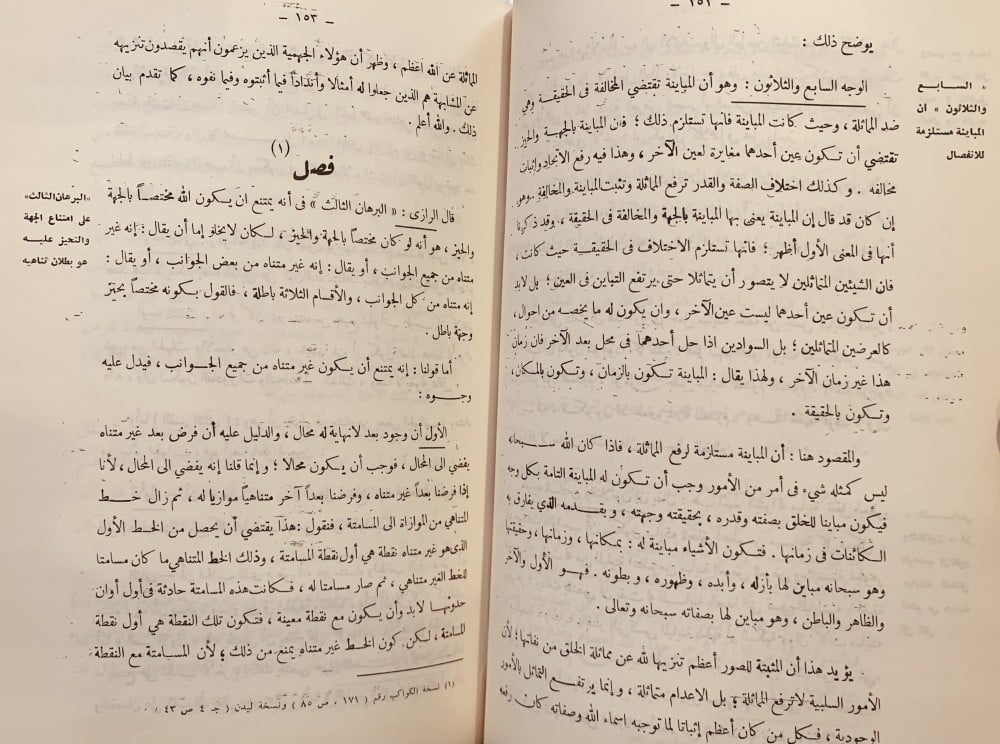 — ١٥٢ —
يوضح ذلك :
الوجه السابع والثلاثون : وهو أن المباينة تقتضي المخالفة فى الحقيقة وهي
ضد المماثلة ، وحيث كانت المباينة فانها تستلزم ذلك ؛ فان المباينة بالجهة والحيز
تقتضي أن تكون عين أحدهما مغايرة لعين الآخر ، وهذا فيه رفع الاتحاد وإثبات
مخالفه . وكذلك اختلاف الصفة والقدر ترفع المماثلة وتثبت المباينة والمخالفة . وهو
إن كان قد قال إن المباينة يعنى بها المباينة بالجهة والمخالفة فى الحقيقة ، وقد ذكرنا
أنها فى المعنى الأول أظهر ؛ فانها تستلزم الاختلاف فى الحقيقة حيث كانت ،
فان الشيئين المتماثلين لا يتصور أن يتماثلا حتى يرتفع التباين فى العين ؛ بل لابد
أن تكون عين أحدهما ليست عين الآخر ، وان يكون له ما يخصه من احوال ،
كالعرضين المتماثلين ؛ بل السوادين اذا حل أحدهما فى محل بعد الآخر فان زمان
هذا غير زمان الآخر ، ولهذا يقال : المباينة تكون بالزمان ، وتكون بالمكان،
وتكون بالحقيقة .
والمقصود هنا : أن المباينة مستلزمة لرفع المماثلة ، فاذا كان الله سبحانه
ليس كمثله شيء فى أمر من الأمور وجب أن تكون له المباينة التامة بكل وجه
فيكون مباينا للخلق بصفته وقدره ، بحقيقته وجهته ، وبقدمه الذي يفارق به
الكائنات فى زمانها . فتكون الأشياء مباينة له : بمكانها ، وزمانها ، وحقيقتها
وهو سبحانه مباين لها بأزله ، وأبده ، وظهوره ، و بطونه . فهو الأول والآخر
والظاهر والباطن ، وهو مباين لها بصفاته سبحانه وتعالى .
يؤيد هذا أن المثبتة للصور أعظم تنزيها لله عن مماثلة الخلق من نفاتها ؛ لأن
الأمور السلبية لا ترفع المماثلة ، بل الاعدام متماثلة ، و إنما يرتفع التماثل بالأمور
الوجودية ، فكل من كان أعظم إثباتا لما توجبه اسماء الله وصفاته كان رفعه
« السابع
والثلاثون » ان
المباينة مستلزمة
للانفصال
— ١٥٣ —
المماثلة عن الله اعظم ، وظهر أن هؤلاء الجهمية الذين يزعمون أنهم يقصدون تنزيهه
عن المشابهة هم الذين جعلوا له أمثالا وأنداداً فيما أثبتوه وفيما نفوه ، كما تقدم بيان
ذلك . والله أعلم .
فصل (١)
قال الرازى : « البرهان الثالث » فى أنه يمتنع ان يكون الله مختصاً بالجهة
والحيز ، هو أنه لو كان مختصاً بالجهة والحيز ، لكان لا يخلو إما أن يقال : إنه غير
متناه من جميع الجوانب ، أو يقال : إنه غير متناه من بعض الجوانب ، أو يقال :
إنه متناه من كل الجوانب ، والأقسام الثلاثة باطلة ، فالقول بكونه مختصاً بحيز
وجهة باطل .
أما قولنا : إنه يمتنع أن يكون غير متناه من جميع الجوانب ، فيدل عليه
وجوه :
الأول أن وجود بعد لانهاية له محال ، والدليل عليه أن فرض بعد غير متناه
يفضي الى المحال ، فوجب أن يكون محالا ؛ و إنما قلنا إنه يفضي الى المحال ، لأنا
إذا فرضنا بعداً غير متناه ، وفرضنا بعداً آخر متناهياً موازيا له ، ثم زال خط
المتناهي من الموازاة الى المسامتة ، فنقول : هذا يقتضي أن يحصل من الخط الأول
الذى هو غير متناه نقطة هي أول نقطة المسامتة ، وذلك الخط المتناهي ما كان مسامتا
للخط الغير متناهي ، ثم صار مسامتا له ، فكانت هذه المسامتة حادثة فى أول أوان
حدوثها لا بد وأن يكون مع نقطة معينة ، فتكون تلك النقطة هي أول نقطة
المسامتة ، لكن كون الخط غير متناه يمنع من ذلك ؛ لأن المسامتة مع النقطة
(١) نسخة الكواكب رقم ( ١٧١ ، ص ٨٥ ) ونسخة ليدن ( جـ ٤ ص ٤٣ ) .
«البرهان الثالث»
على امتناع الجهة
والتحيز عليه
هو بطلان تناهيه